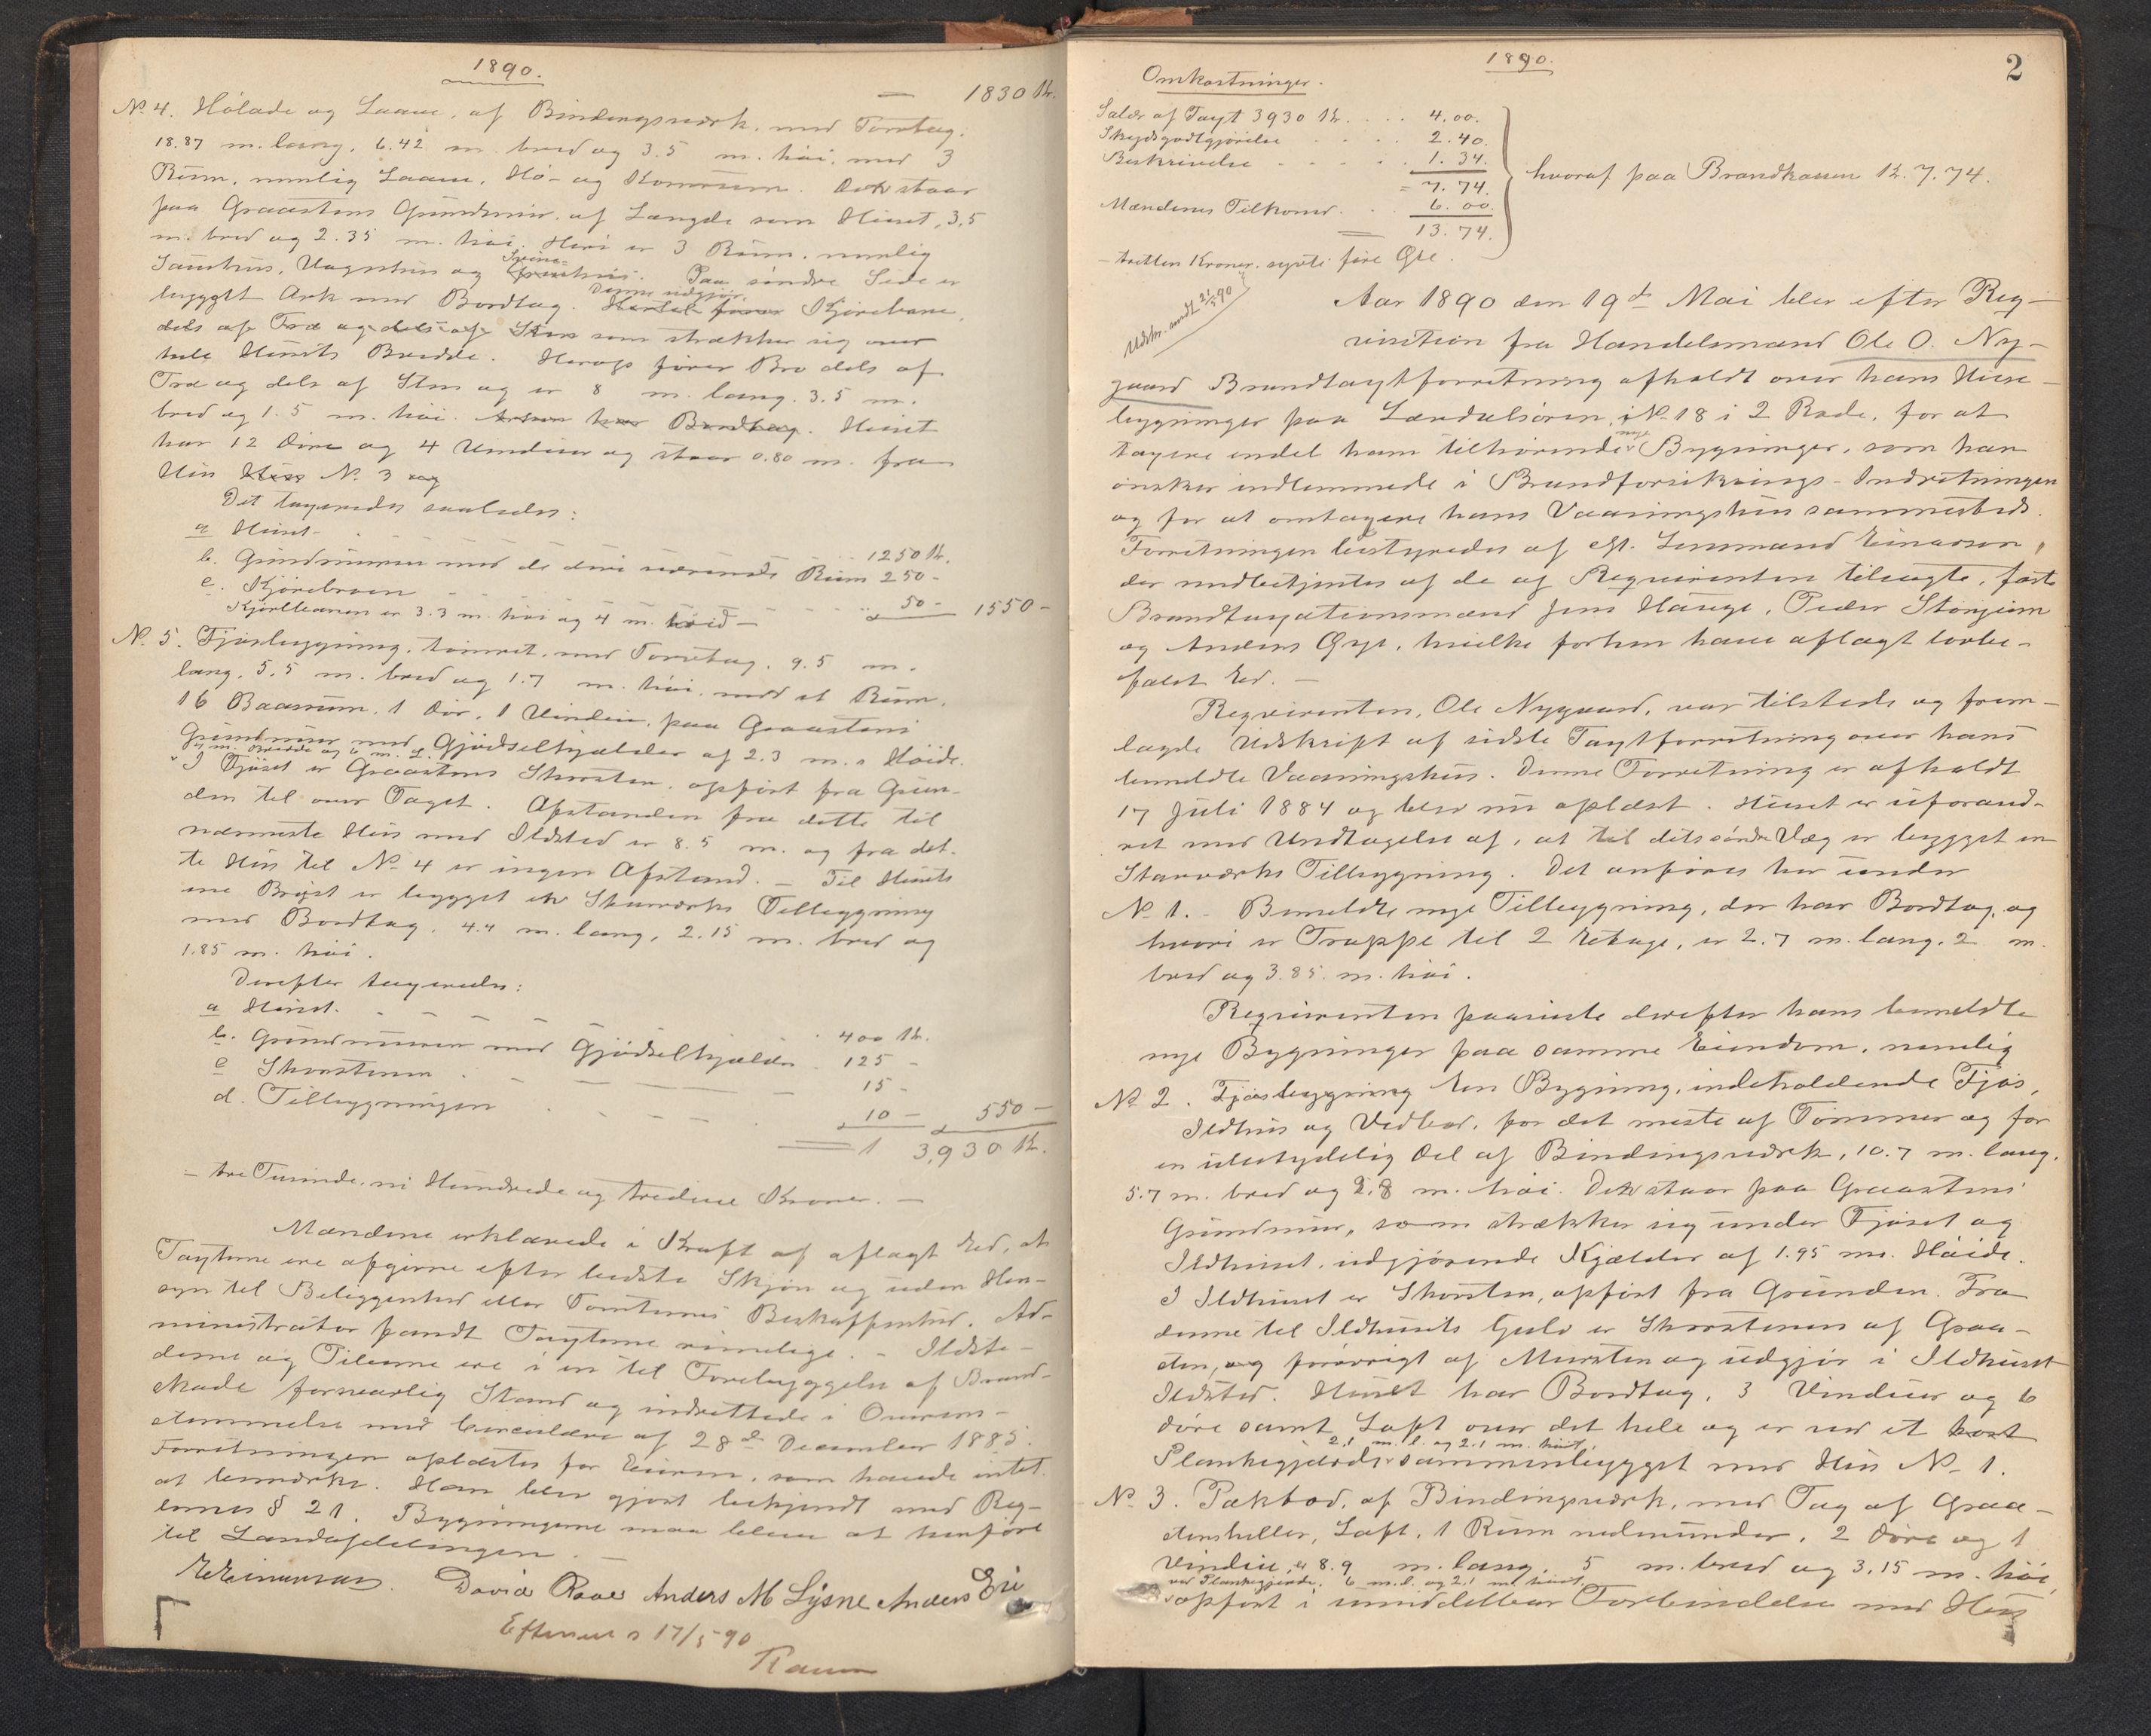 1890.
— 1830 Kr.
No 4. Hölade og Laave, af Bindingsværk, med Torvtag.
18.87 m. lang, 6.42 m. bred og 3.5 m. höi, med 3
Rum, nemlig Laave, Hö- og Kornrum. Det staar
paa Graastens Grundmur, af Længde som Huset, 3,5
m. bred og 2.35 m. höi. Heri er 3 Rum, nemlig
Sauehus, Vognhus og
Paa söndre Side er
bygget Ark med Bordtag. Denne udgjör Kjörebane,
dels af Træ og dels af Sten som strækker sig over
hele Husets Bredde. Herop förer Bro dels af
Træ og dels af Sten og er 8 m. lang, 3.5 m.
bred og 1.5 m. höi. Arken har Bordtag. Huset
har 12 Döre og 4 Vinduer og staar 0.80 m. fra
Hus No 3
Det taxeredes saaledes:
a Huset - - - 1250 Kr.
b. Grundmuren med de deri værende Rum 250 -
c. Kjörebroen - - - 50 - 1550 -
Kjörebanen er 3.3 m. höi og 4 m. bred -
No 5. Fjösbygning, tömret, med Torvtag, 9.5 m.
lang, 5,5 m. bred og 1.7 m. höi, med et Rum,
16 Baasrum, 1 Dör, 1 Vindue, paa Graastens
Grundmur med Gjödselkjælder af 2.3 m.s Höide.
m. Bredde og 6 m. L.
I Fjöset er Graastens Skorsten, opfört fra Grun-
den til over Taget. Afstanden fra dette til
nærmeste Hus med Ildsted er 8.5 m. og fra det-
te Hus til No 4 er ingen Afstand. - Til Husets
ene Bröst er bygget en Skurværks Tilbygning
med Bordtag, 4.4 m. lang, 2.15 m. bred og
1.85 m. höi.
Derefter taxeredes:
a Huset - - - 400 Kr.
b. Grundmuren med Gjödselkjælder 125 -
c Skorstenen - - - 15 -
d. Tilbygningen - - - 10 - 550 -
= 3,930 Kr.
- tre Tusinde, ni Hundrede og tredive Kroner. -
Mændene erklærede i Kraft af aflagt Ed, at
Taxterne ere afgivne efter bedste Skjön og uden Hen-
syn til Beliggenhed eller Tomternes Beskaffenhed. Ad-
ministrator fandt Taxterne rimelige. - Ildste-
derne og Piberne ere i en til Forebyggelse af Brand-
skade forsvarlig Stand og indrettede i Overens-
stemmelse med Circulære af 28de December 1885.
Forretningen oplæstes for Eieren, som havde intet
at bemærke. Han blev gjort bekjendt med Reg-
lernes § 21. Bygningerne maa blive at henföre
til Landafdelingen. -
EEinarsen. David Anders M Lysne Anders Eri
Efterseet 17/5 90
1890.
2
Omkostninger.
Salær af Taxt 3930 Kr. . . . 4.00.
Skydsgodtgjörelse . . . 2.40.
Beskrivelse . . . 1.34.
= 7.74.
Mændenes Tilkomst . . 6.00.
= 13.74.
hvoraf paa Brandkassen Kr. 7.74.
- tretten Kroner, sytti fire Öre.
Udskr. sendt 21/5 90
Aar 1890 den 19de Mai blev efter Reqvi-
sition fra Handelsmand Ole O. Ny-
gaard Brandtaxtforretning afholdt over hans Huse-
bygninger paa Lærdalsören, No 18 i 2 Rode, for at
taxere endel ham tilhörende nye Bygninger, som han
önsker indlemmede i Brandforsikrings-Indretningen
og for at omtaxere hans Vaaningshus sammesteds.
Forretningen bestyredes af cst. Lensmand Einarsen,
der medbetjentes af de af Reqvirenten tilsagte, faste
Brandtaxationsmænd Jens Hauge, Peder Stönjum
og Anders Grye, hvilke forhen have aflagt lovbe-
falet Ed. -
Reqvirenten, Ole Nygaard, var tilstede og frem-
lagde Udskrift af sidste Taxtforretning over hans
bemeldte Vaaningshus. Denne Forretning er afholdt
17 Juli 1884 og blev nu oplæst. Huset er uforand-
ret med Undtagelse af, at til dets söndre Væg er bygget en
Stavværks Tilbygning. Det anföres her under
No 1. - Bemeldte nye Tilbygning, der har Bordtag, og
hvori er Trappe til 2 Etage, er 2.7 m. lang, 2 m.
bred og 3.85 m. höi.
Reqvirenten paaviste derefter hans bemeldte
nye Bygninger paa samme Eiendom, nemlig
No 2. Fjösbygning En Bygning, indeholdende Fjös,
Ildhus og Vedbod, for det meste af Tömmer og for
en ubetydelig Del af Bindingsværk, 10.7 m. lang,
5.7 m. bred og 2.8 m. höi. Det staar paa Graastens
Grundmur, som strækker sig under Fjöset og
Ildhuset, udgjörende Kjælder af 1.95 m. Höide.
I Ildhuset er Skorsten, opfört fra Grunden. Fra
denne til Ildhusets Gulv er Skorstenen af Graa-
sten, og forövrigt af Mursten og udgjör i Ildhuset
Ildsted. Huset har Bordtag, 3 Vinduer og 6
Döre samt Loft over det hele og er ved et kort
2,1 m. l. og 2.1 m. höit
Plankegjærde sammenbygget med Hus No 1.
No 3. Pakbod, af Bindingsværk, med Tag af Graa-
stensheller, Loft, 1 Rum nedenunder, 2 Döre og 1
Vindue, er 8.9 m. lang, 5 m. bred og 3,15 m. höi,
ved Plankegjærde, 6 m. l. og 2,1 m. höit
opfört i umiddelbar Forbindelse med Hus